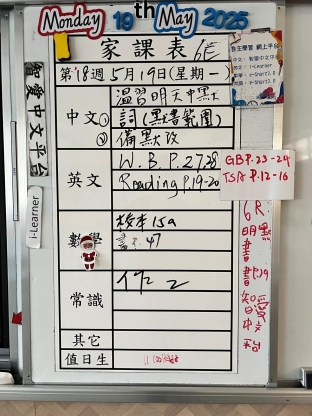 Monday 19th May 2025
家課表 6E
第18週5月19日(星期一)
自主學習 網上平台
智愛中文平台
i-Learner
中文
① 溫習明天中默
詞(默書範圍)
② 備默改
英文
W.B. P.27,28
Reading P.19-20
GB P.23-24
TSA P.12-16
數學
校本15a
47
常識
作2
其它
值日生
6R
明默
書
智愛
中文
平台